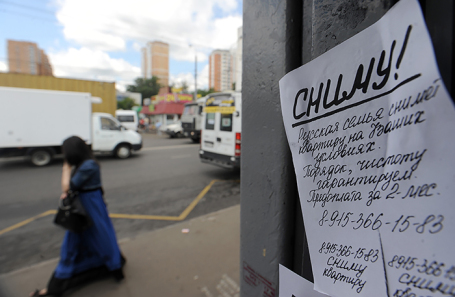 СНИМУ!
Русская семья снимет
квартиру на Ваших
условиях.
Порядок, чистоту
гарантируем.
Предоплата за 2 мес.
8-915-366-15-83
8-915-366-15-83
СНИМУ
квартиру
8-915-366-15-83
СНИМУ